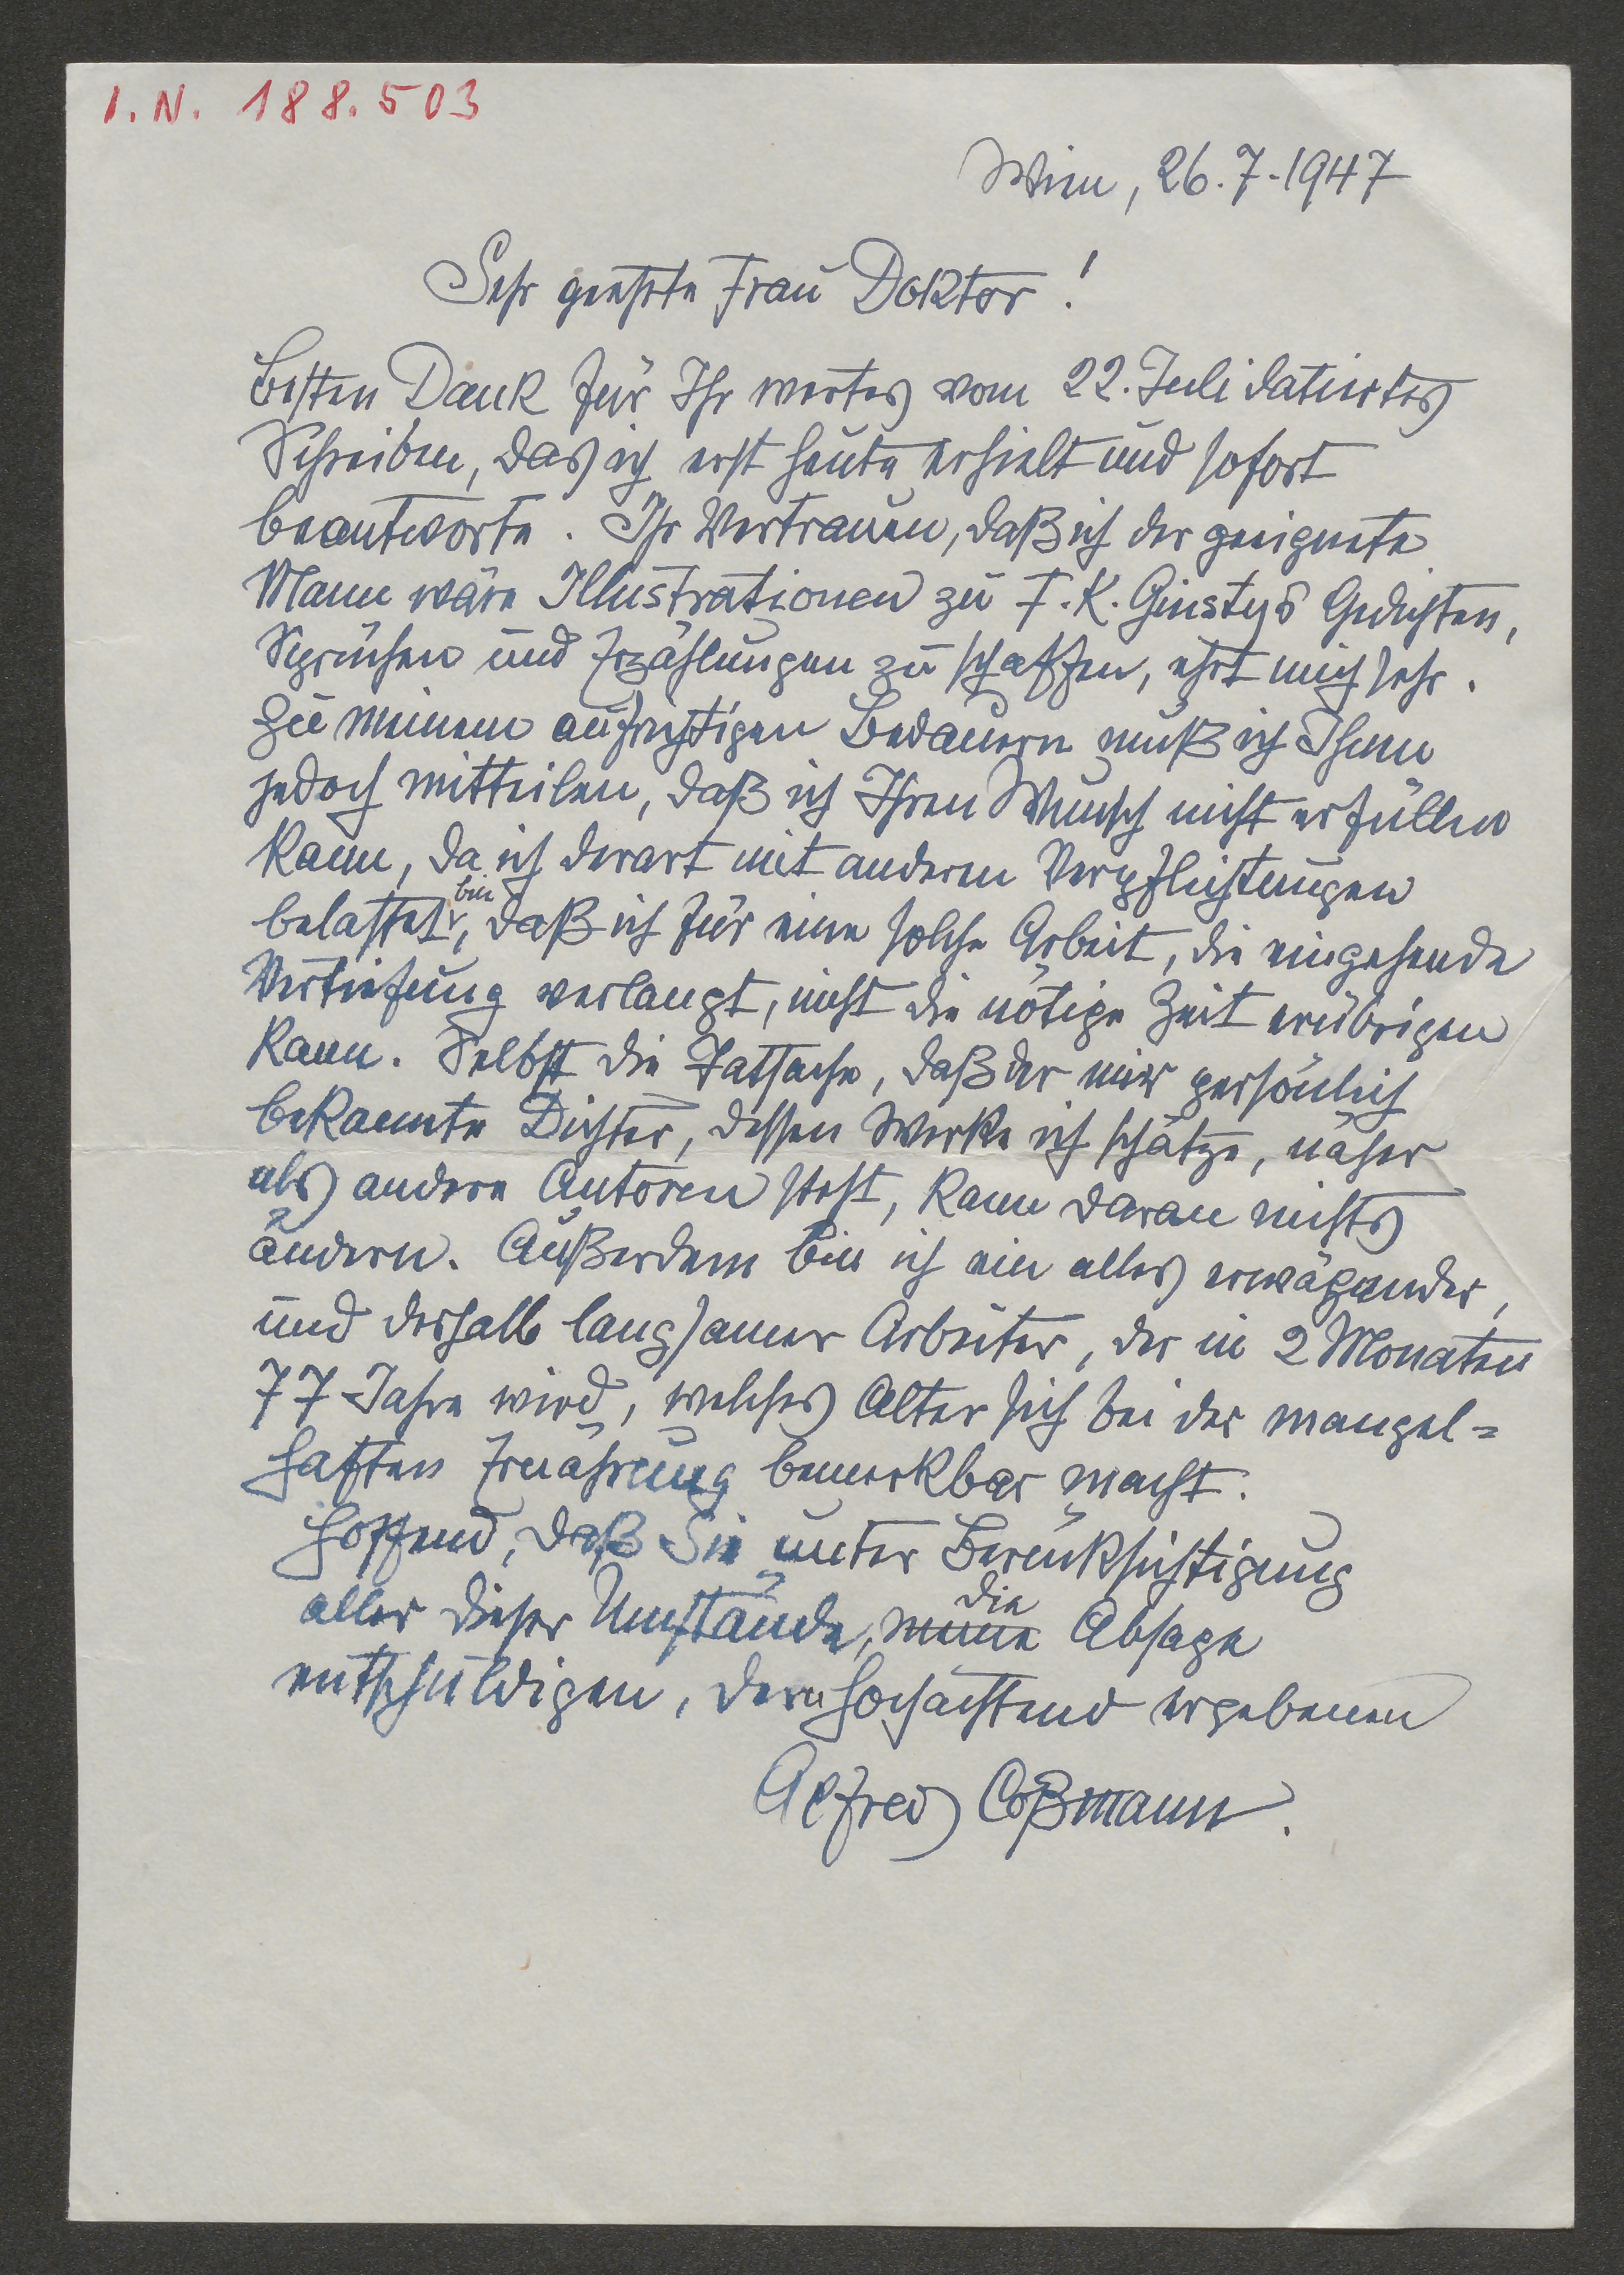 I.N. 188.503
Wien, 26.7.1947
Sehr geehrte Frau Doktor!
Besten Dank für Ihr wertes vom 22. Juli datiertes
Schreiben, das ich erst heute erhielt und sofort
beantworte. Ihr Vertrauen, daß ich der geeignete
Mann wäre Illustrationen zu F. K. Ginzkeys Gedichten,
Sprüchen und Erzählungen zu schaffen, ehrt mich sehr.
Zu meinem aufrichtigen Bedauern muß ich Ihnen
jedoch mitteilen, daß ich Ihren Wunsch nicht erfüllen
kann, da ich derart mit anderen Verpflichtungen
belastet bin, daß ich für eine solche Arbeit, die eingehende
Vertiefung verlangt, nicht die nötige Zeit erübrigen
kann. Selbst die Tatsache, daß der mir persönlich
bekannte Dichter, dessen Werke ich schätze, näher
als andere Autoren steht, kann daran nichts
ändern. Außerdem bin ich ein alles erwägender,
und deshalb langsamer Arbeiter, der in 2 Monaten
77 Jahre wird, welches Alter sich bei der mangel=
haften Ernährung bemerkbar macht.
Hoffend, daß Sie unter Berücksichtigung
aller dieser Umstände, meine die Absage
entschuldigen, dem hochachtend ergebenen
Alfred Coßmann.